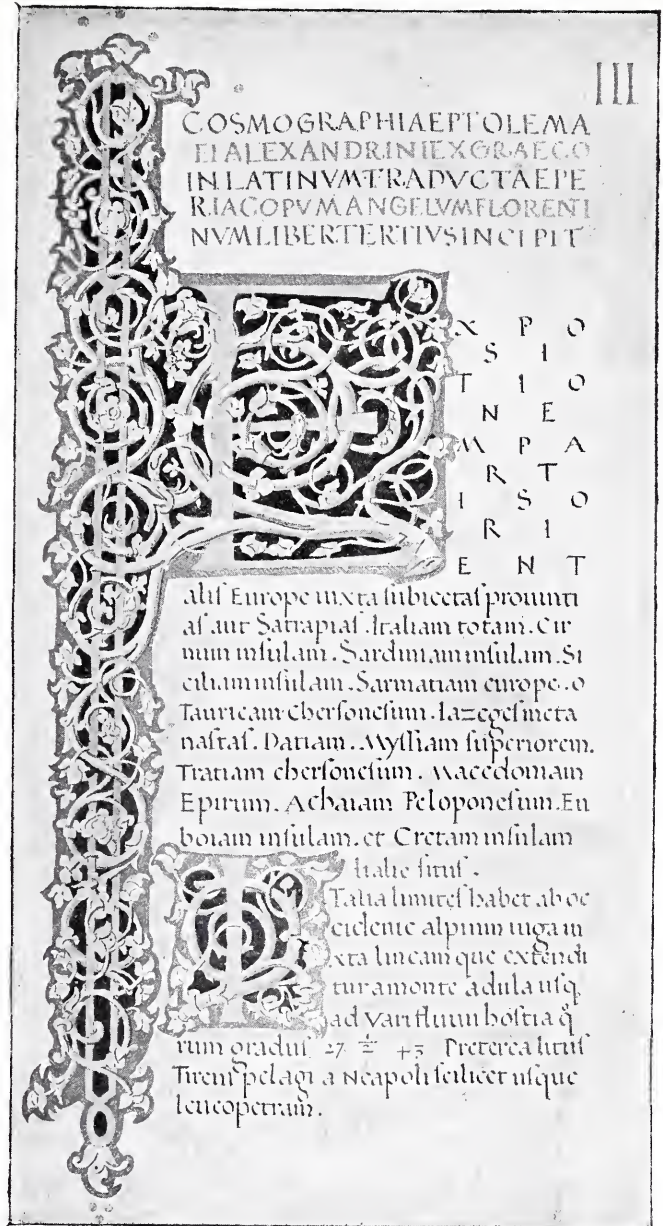 III
COSMOGRAPHIAEPTOLEMA
EIALEXANDRINIEXGRAECO
INLATINVMTRADVCTAEIPE
RIACOPVMANGELVMFLORENTI
NVMLIBERTERTIVSINCIPIT
E X P O
S I
T I O
N E
M P A
R T
I S O
R I
E N T
aliſ Europe iuxta ſubiectaſ prouinti
aſ aut Satrapiaſ. Italiam totam. Cir
num inſulam. Sardiniam inſulam. Si
ciliam inſulam. Sarmatiam europe. o
Tauricam Cherſoneſum. Iazegeſ meta
naſtaſ. Datiam. Myſſiam ſuperiorem.
Tratiam cherſoneſum. Macedoniam
Epirum. Achaiam Peloponeſum. Eu
boiam inſulam. et Cretam inſulam
Italie ſituſ.
ITalia limiteſ habet ab oc
cidente alpium iuga iu
xta lineam que extendi
tur a monte adula uſq
ad Vari fluuii hoſtia q̊
rum graduſ 27 ½ 43 Preterea lituſ
Tireni pelagi a Neapoli ſcilicet uſque
leucopetram.